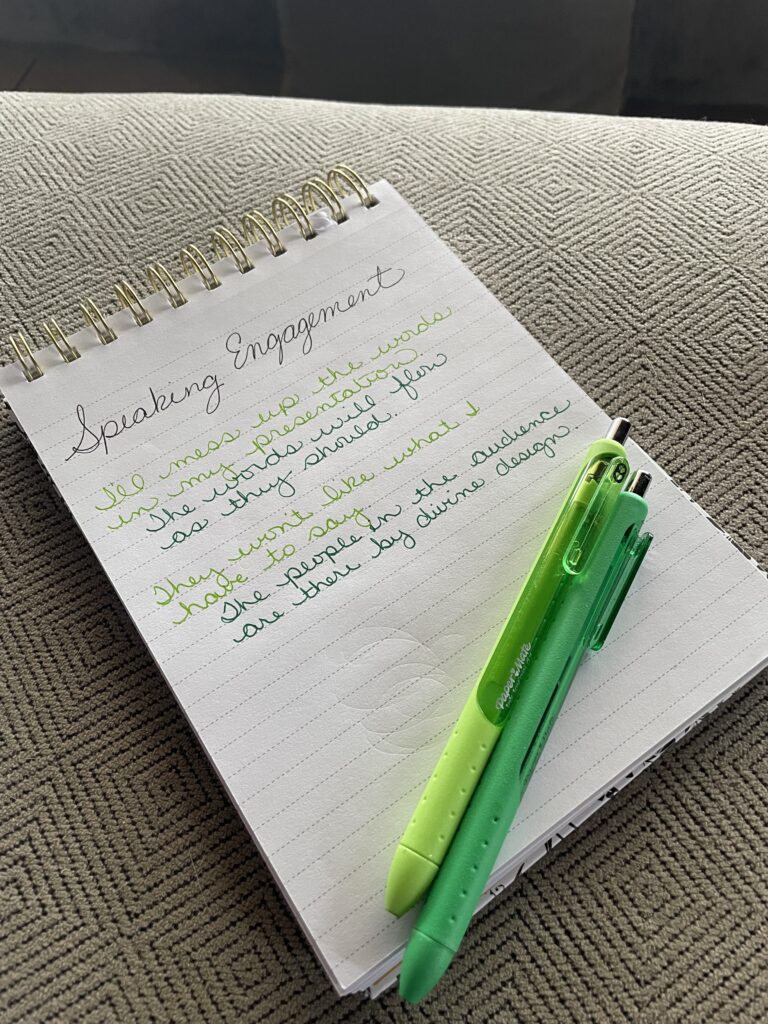 Speaking Engagement
I'll mess up the words
in my presentation.
The words will flow
as they should.
They won't like what I
have to say
The people in the audience
are there by divine design.
Paper:Mate